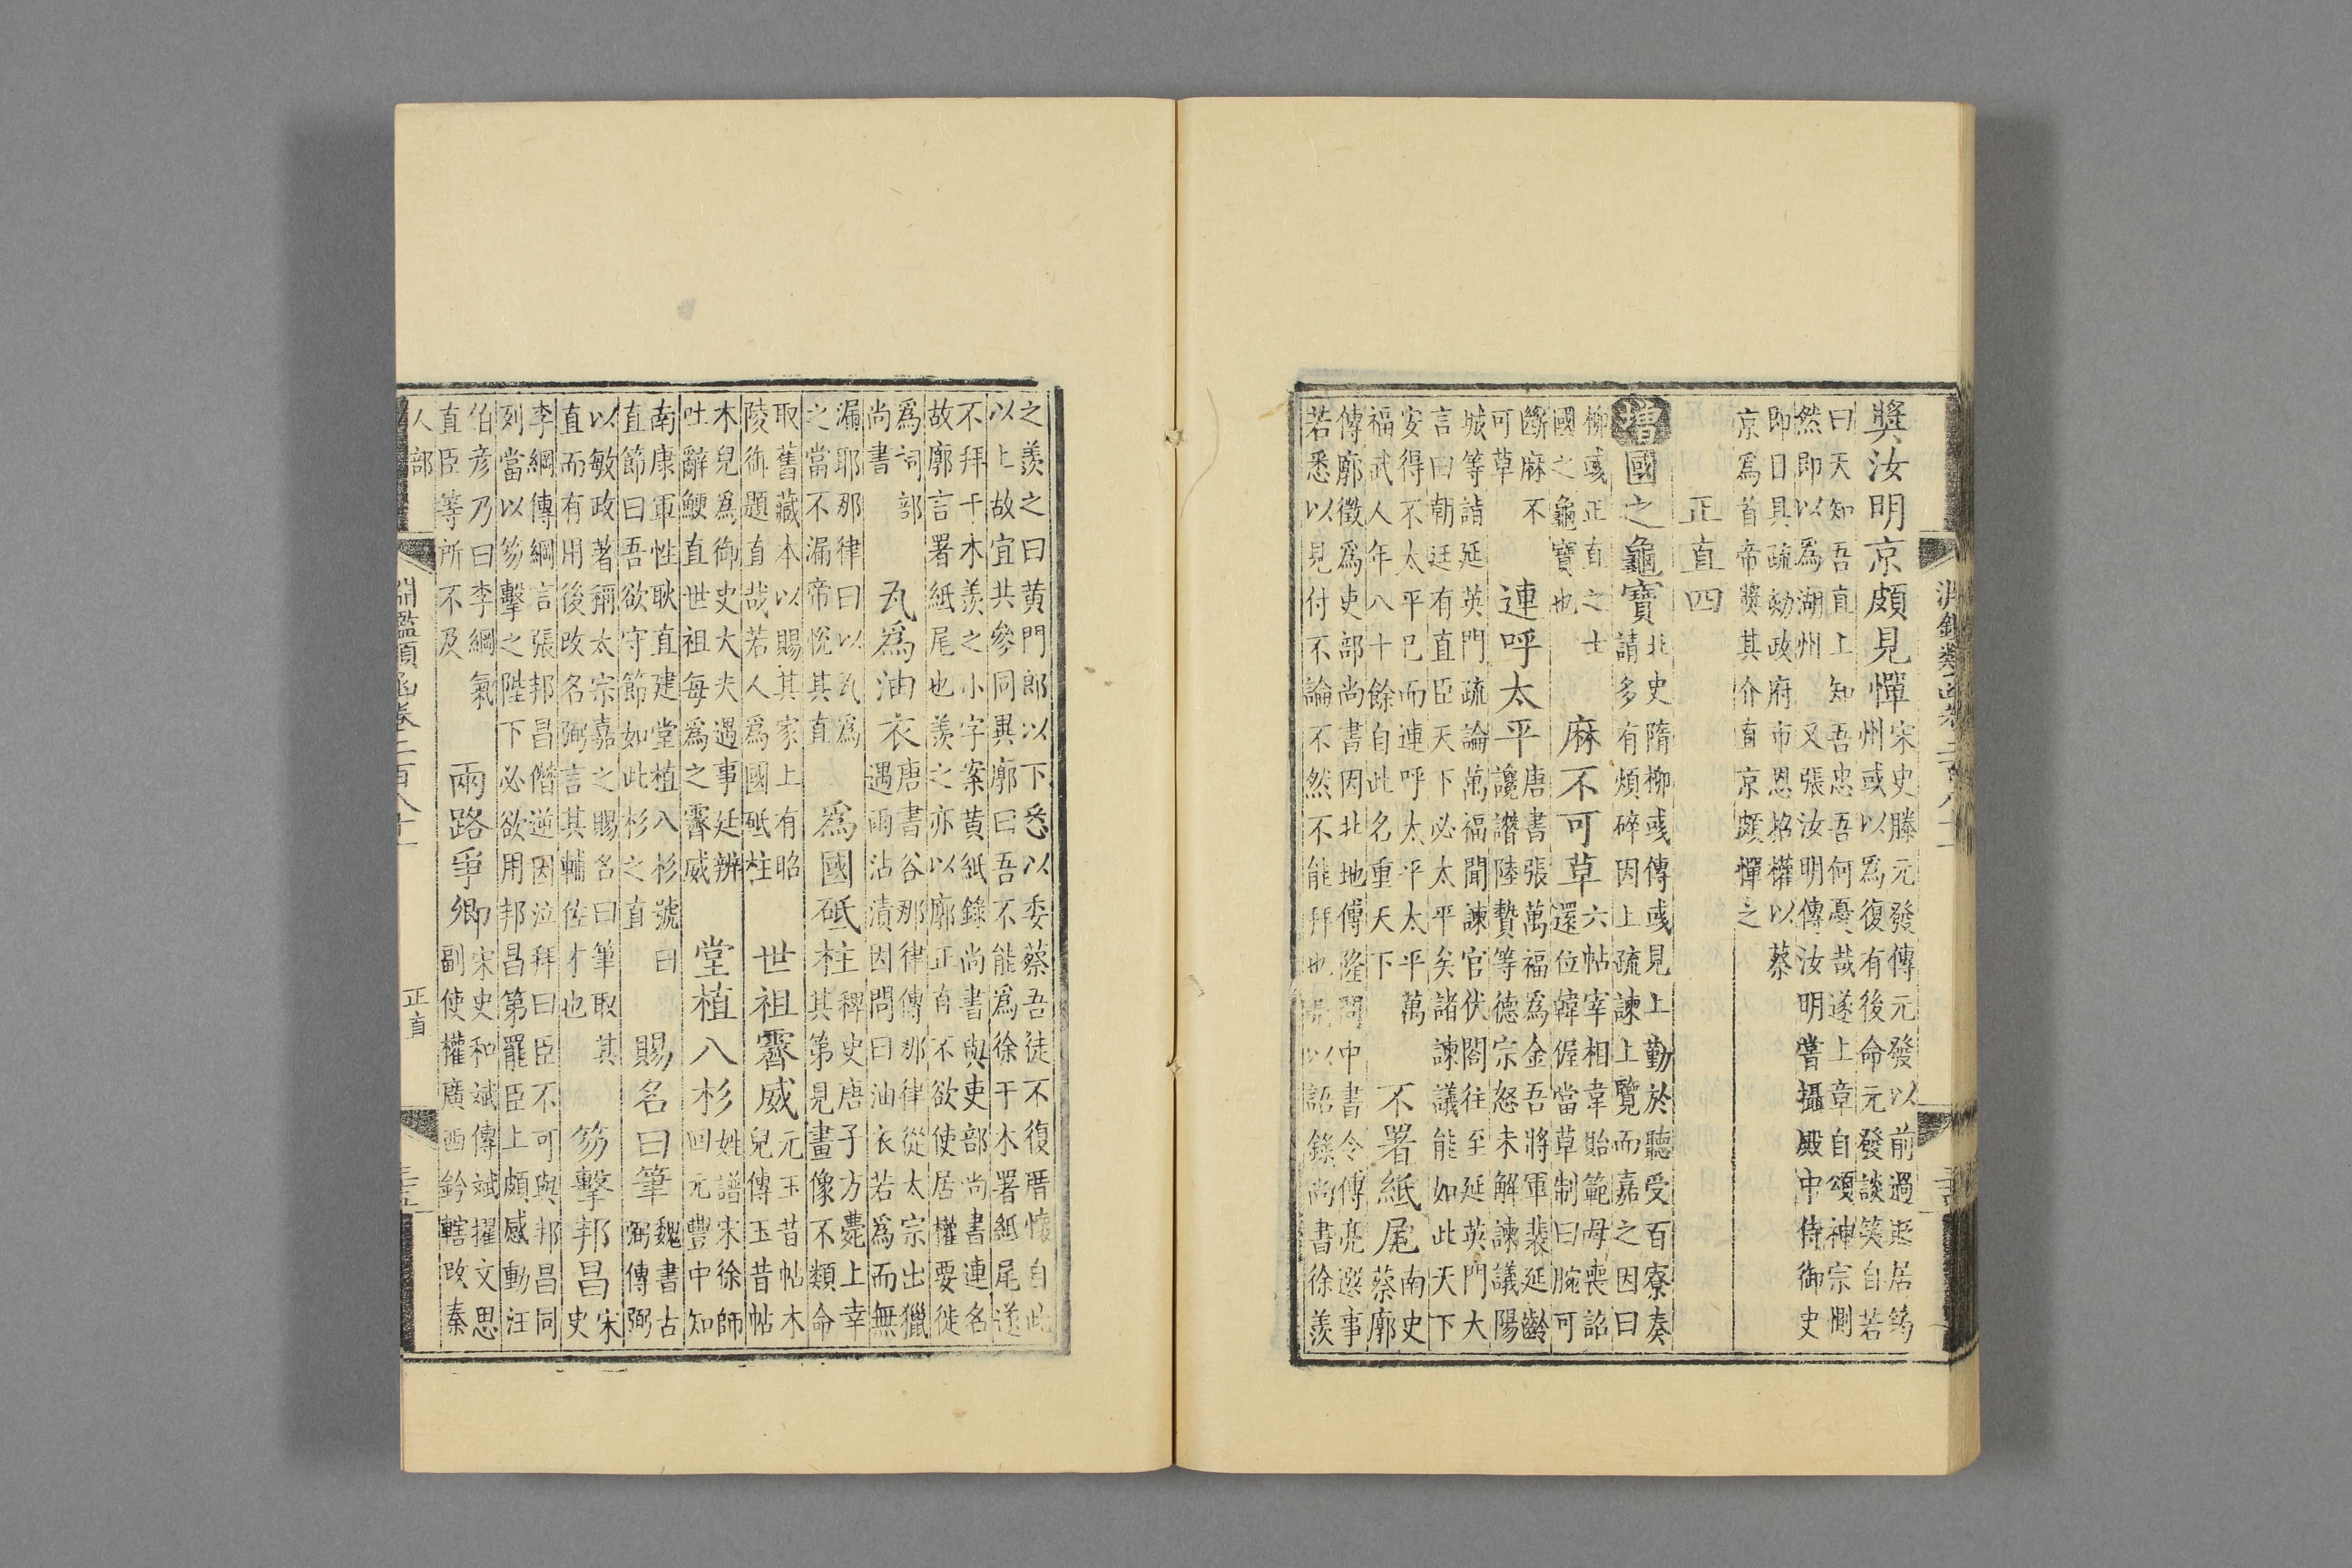 淵鑑類函卷二百八十一
獎汝明京頗見憚
宋史滕元發傳元發以前過惡居筠
州或以爲復有後命元發談笑自若
曰天知吾直上知吾忠吾何憂哉遂上章自頌神宗惻
然即以爲湖州 又張汝明傳汝明嘗攝殿中侍御史
即日具疏劾政府市恩招權以蔡
京爲首帝獎其介直京頗憚之
正直四
增國之龜寶
北史隋柳彧傳彧見上勤於聽受百寮奏
請多有煩碎因上疏諫上覽而嘉之因曰
柳彧正直之士
國之龜寶也
麻不可草
六帖宰相韋貽範母喪詔
還位韓偓當草制曰腕可
斷麻不
可草
連呼太平
唐書張萬福爲金吾將軍裴延齡
讒譖陸贄等德宗怒未解諫議陽
城等詣延英門疏論萬福聞諫官伏閤往至延英門大
言曰朝廷有直臣天下必太平矣諸諫議能如此天下
安得不太平已而連呼太平太平萬
福武人年八十餘自此名重天下
不署紙尾
南史
蔡廓
傳廓徵爲吏部尚書因北地傅隆問中書令傅亮選事
若悉以見付不論不然不能拜也亮以語錄尚書徐羨
之羨之曰黃門郎以下悉以委蔡吾徒不復厝懷自此
以上故宜共參同異廓曰吾不能爲徐干木署紙尾遂
不拜干木羨之小字案黃紙錄尚書與吏部尚書連名
故廓言署紙尾也羨之亦以廓正直不欲使居權要徙
爲詞部
尚書
瓦爲油衣
唐書谷那律傳那律從太宗出獵
遇雨沾漬因問曰油衣若爲而無
漏耶那律曰以瓦爲
之當不漏帝悅其直
爲國砥柱
稗史唐子方薨上幸
其第見畫像不類命
取舊藏本以賜其家上有昭
陵御題直哉若人爲國砥柱
世祖霽威
元玉昔帖木
兒傳玉昔帖
木兒爲御史大夫遇事廷辨
吐辭鯁直世祖每爲之霽威
堂植八杉
姓譜宋徐師
回元豐中知
南康軍性耿直建堂植八杉號曰
直節曰吾欲守節如此杉之直
賜名曰筆
魏書古
弼傳弼
以敏政著稱太宗嘉之賜名曰筆取其
直而有用後改名弼言其輔佐才也
笏擊邦昌
宋
史
李綱傳綱言張邦昌僭逆因泣拜曰臣不可與邦昌同
列當以笏擊之陛下必欲用邦昌第罷臣上頗感動汪
伯彥乃曰李綱氣
直臣等所不及
兩路爭卿
宋史和斌傳斌擢文思
副使權廣西鈐轄改秦
人部
淵鑑類函卷二百八十一
正直